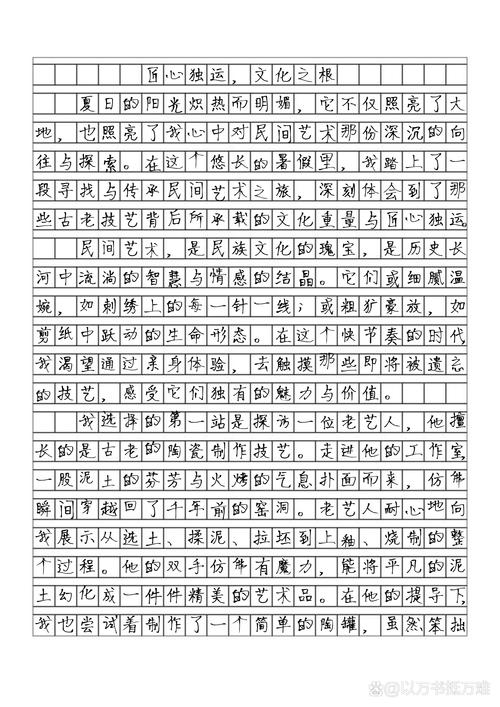 匠心独运，文化之根
夏日的阳光炽热而明媚，它不仅照亮了大
地，也照亮了我心中对民间艺术那份深沉的向
往与探索。在这个悠长的暑假里，我踏上了一
段寻找与传承民间艺术之旅，深刻体会到了那
些古老技艺背后所承载的文化重量与匠心独运。
民间艺术，是民族文化的瑰宝，是历史长
河中流淌的智慧与情感的结晶。它们或细腻温
婉，如刺绣上的每一针一线；或粗犷豪放，如
剪纸中跃动的生命形态。在这个快节奏的时代，
我渴望通过亲身体验，去触摸那些即将被遗忘
的技艺，感受它们独有的魅力与价值。
我选择的第一站是探访一位老艺人，他擅
长的是古老的陶瓷制作技艺。走进他的工作室，
一股泥土的芬芳与火烤的气息扑面而来，仿佛
瞬间穿越回了千年前的窑洞。老艺人耐心地向
我展示从选土、揉泥、拉坯到上釉、烧制的整
个过程。他的双手仿佛有魔力，能将平凡的泥
土幻化成一件件精美的艺术品。在他的提导下，
我也尝试着制作了一个简单的陶罐，虽然笨拙
@以万书抵万难